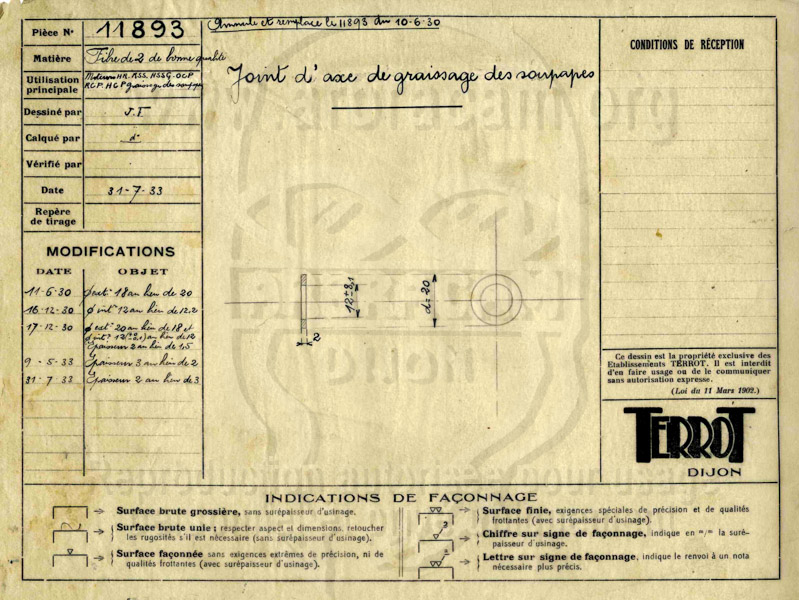 Pièce N° 11893
Matière Fibre de 2 de bonne qualité
Utilisation principale Moteurs HR. RSS. HSSG. OCP
RCP. HCP graissage des soupapes
Dessiné par J.T.
Calqué par d°
Vérifié par
Date 31-7-33
Repère
de tirage
MODIFICATIONS
DATE OBJET
11-6-30 φ ext. 18 au lieu de 20
16-12-30 φ int. 12 au lieu de 12.2
17-12-30 φ ext. 20 au lieu de 18 et
φ int. 12 au lieu de 12
Epaisseur 2 au lieu de 1,5
9-5-33 Epaisseur 3 au lieu de 2
31-7-33 Epaisseur 2 au lieu de 3
Annule et remplace le 11893 du 10-6-30
Joint d'axe de graissage des soupapes
2
12
d = 20
CONDITIONS DE RÉCEPTION
Ce dessin est la propriété exclusive des
Etablissements TERROT. Il est interdit
d'en faire usage ou de le communiquer
sans autorisation expresse.
(Loi du 11 Mars 1902.)
TERROT
DIJON
INDICATIONS DE FAÇONNAGE
Surface brute grossière, sans surépaisseur d'usinage.
Surface brute unie; respecter aspect et dimensions, retoucher
les rugosités s'il est nécessaire (sans surépaisseur d'usinage).
Surface façonnée sans exigences extrêmes de précision, ni de
qualités frottantes (avec surépaisseur d'usinage).
Surface finie, exigences spéciales de précision et de qualités
frottantes (avec surépaisseur d'usinage).
3
Chiffre sur signe de façonnage, indique en m/m la suré-
paisseur d'usinage.
Lettre sur signe de façonnage, indique le renvoi à un nota
nécessaire plus précis.